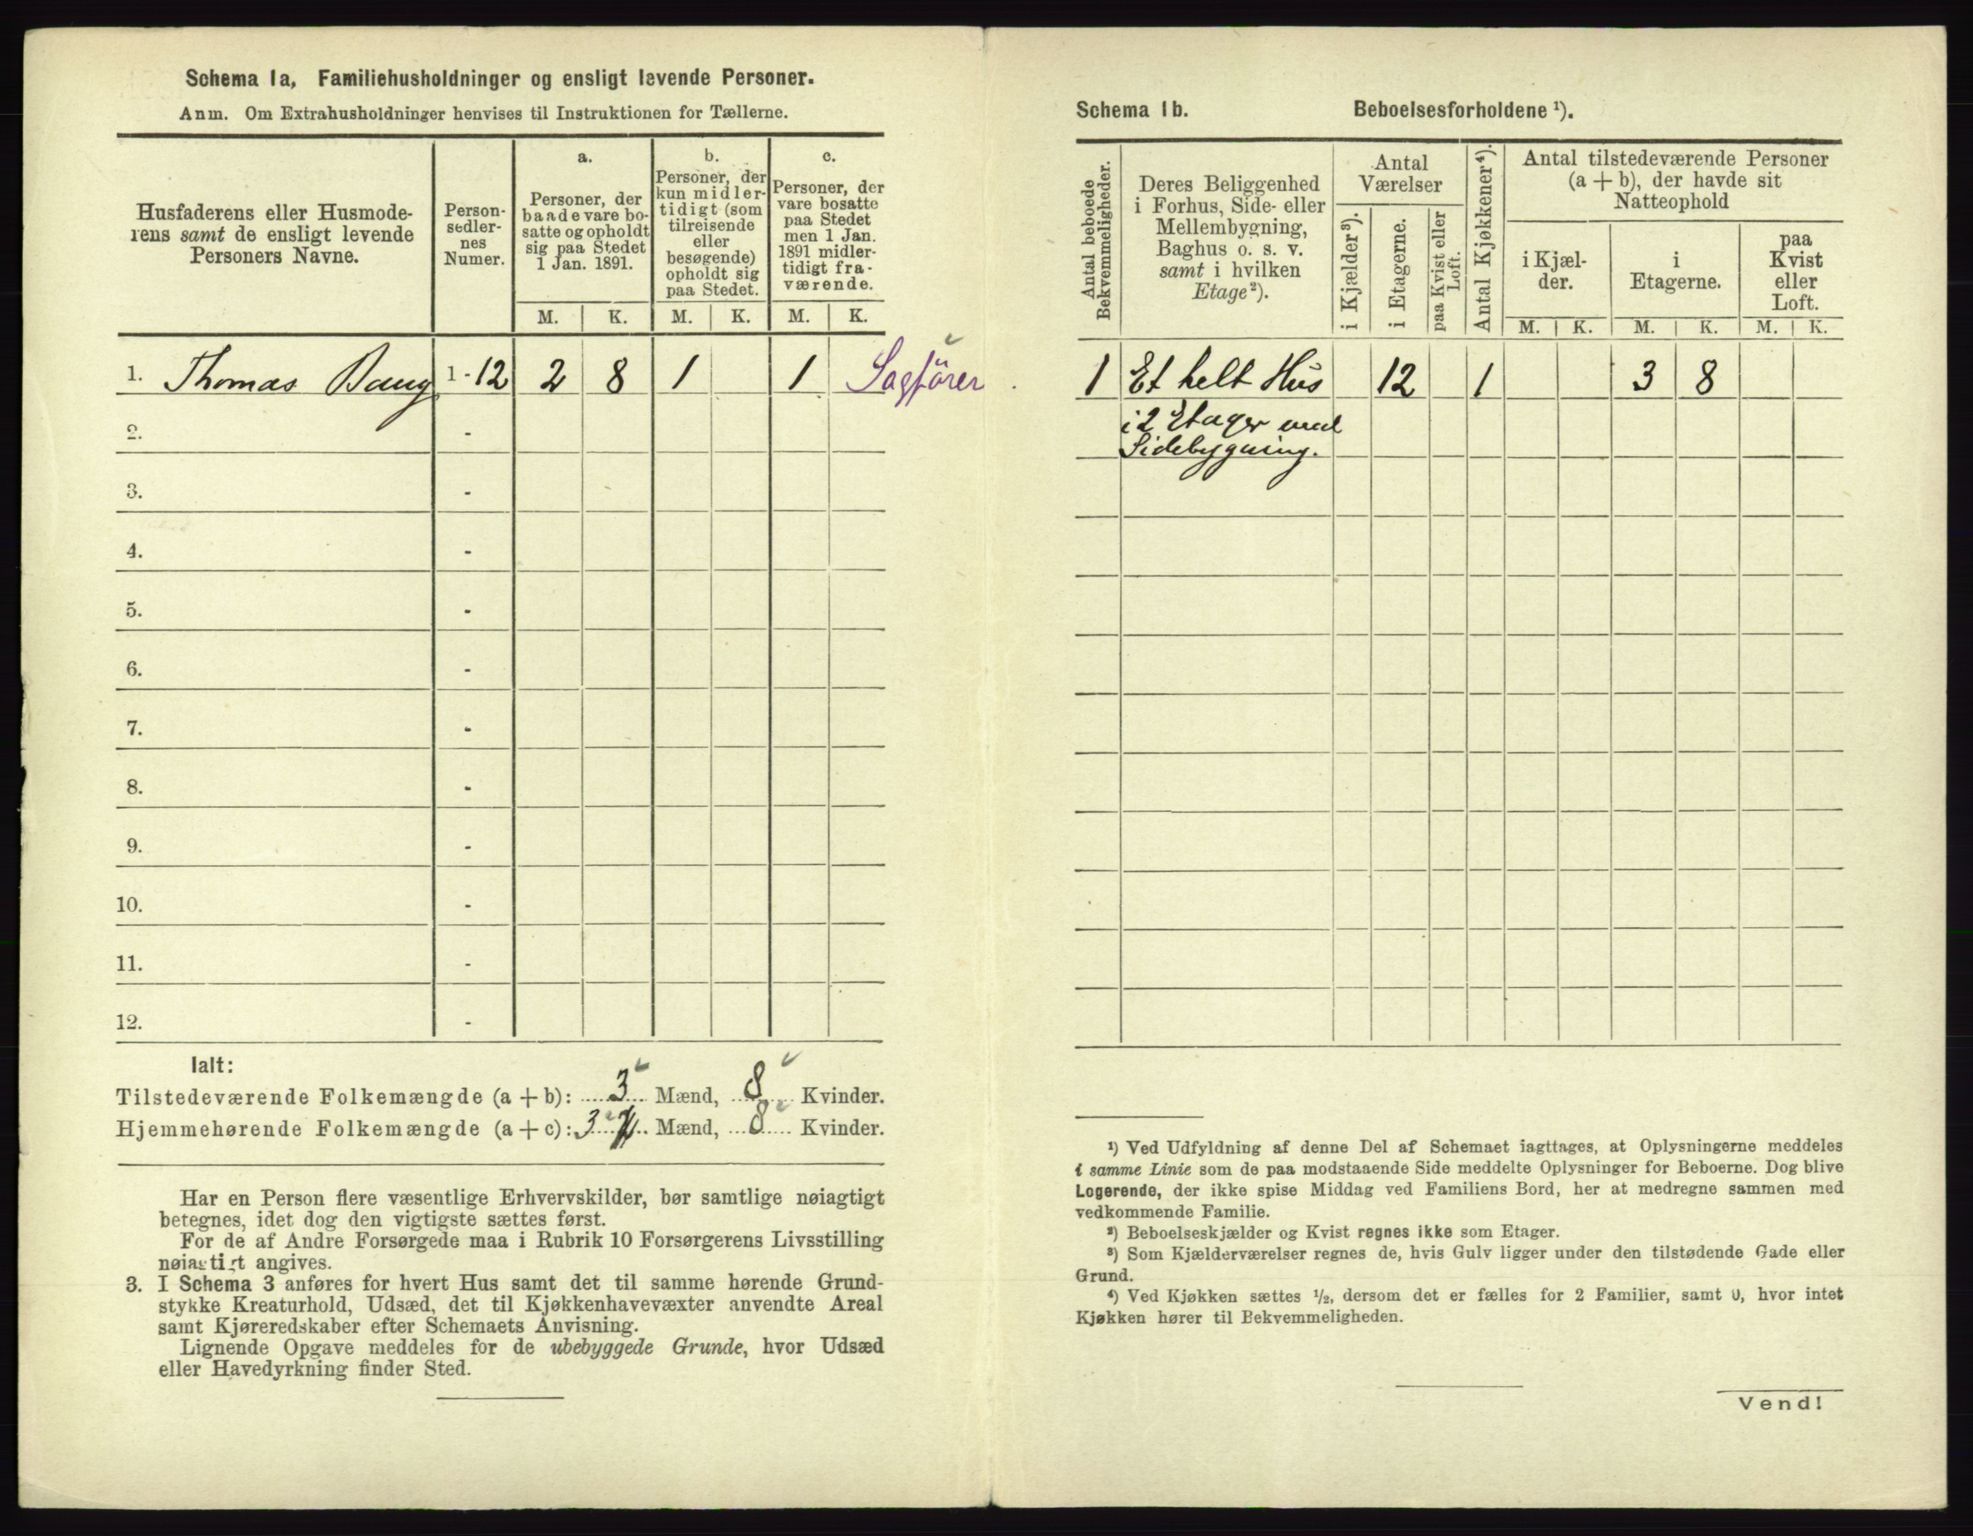 Schema 1a, Familiehusholdninger og ensligt levende Personer.
Anm. Om Extrahusholdninger henvises til Instruktionen for Tællerne.
Husfaderens eller Husmode-
rens samt de ensligt levende
Personers Navne.
Person-
sedler-
nes
Numer.
a.
Personer, der
baade vare bo-
satte og opholdt
sig paa Stedet
1 Jan. 1891.
b.
Personer, der
kun midler-
tidigt (som
tilreisende
eller
besøgende)
opholdt sig
paa Stedet.
c.
Personer, der
vare bosatte
paa Stedet
men 1 Jan.
1891 midler-
tidigt fra-
værende.
M. K. M. K. M. K.
1. Thomas Bang 1 - 12 2 8 1 1 Sagförer
2. -
3. -
4. -
5. -
6. -
7. -
8. -
9. -
10. -
11. -
12. -
Ialt:
Tilstedeværende Folkemængde (a + b): 3 Mænd, 8 Kvinder.
Hjemmehørende Folkemængde (a + c): 3 Mænd, 8 Kvinder.
Har en Person flere væsentlige Erhvervskilder, bør samtlige nøiagtigt
betegnes, idet dog den vigtigste sættes først.
For de af Andre Forsørgede maa i Rubrik 10 Forsørgerens Livsstilling
nøiagtigt angives.
3. I Schema 3 anføres for hvert Hus samt det til samme hørende Grund-
stykke Kreaturhold, Udsæd, det til Kjøkkenhavevæxter anvendte Areal
samt Kjøreredskaber efter Schemaets Anvisning.
Lignende Opgave meddeles for de ubebyggede Grunde, hvor Udsæd
eller Havedyrkning finder Sted.
Schema 1b. Beboelsesforholdene ¹).
Antal beboede
Bekvemmeligheder.
Deres Beliggenhed
i Forhus, Side- eller
Mellembygning,
Baghus o. s. v.
samt i hvilken
Etage²).
Antal
Værelser
i Kjælder³).
i Etagerne.
paa Kvist eller
Loft.
Antal Kjøkkener⁴).
Antal tilstedeværende Personer
(a + b), der havde sit
Natteophold
i Kjæl-
der.
i
Etagerne.
paa
Kvist
eller
Loft.
M. K. M. K. M. K.
1 Et helt Hus 12 1 3 8
i 2 Etager med
Sidebygning.
¹) Ved Udfyldning af denne Del af Schemaet iagttages, at Oplysningerne meddeles
i samme Linie som de paa modstaaende Side meddelte Oplysninger for Beboerne. Dog blive
Logerende, der ikke spise Middag ved Familiens Bord, her at medregne sammen med
vedkommende Familie.
²) Beboelseskjælder og Kvist regnes ikke som Etager.
³) Som Kjælderværelser regnes de, hvis Gulv ligger under den tilstødende Gade eller
Grund.
⁴) Ved Kjøkken sættes ½, dersom det er fælles for 2 Familier, samt 0, hvor intet
Kjøkken hører til Bekvemmeligheden.
Vend!